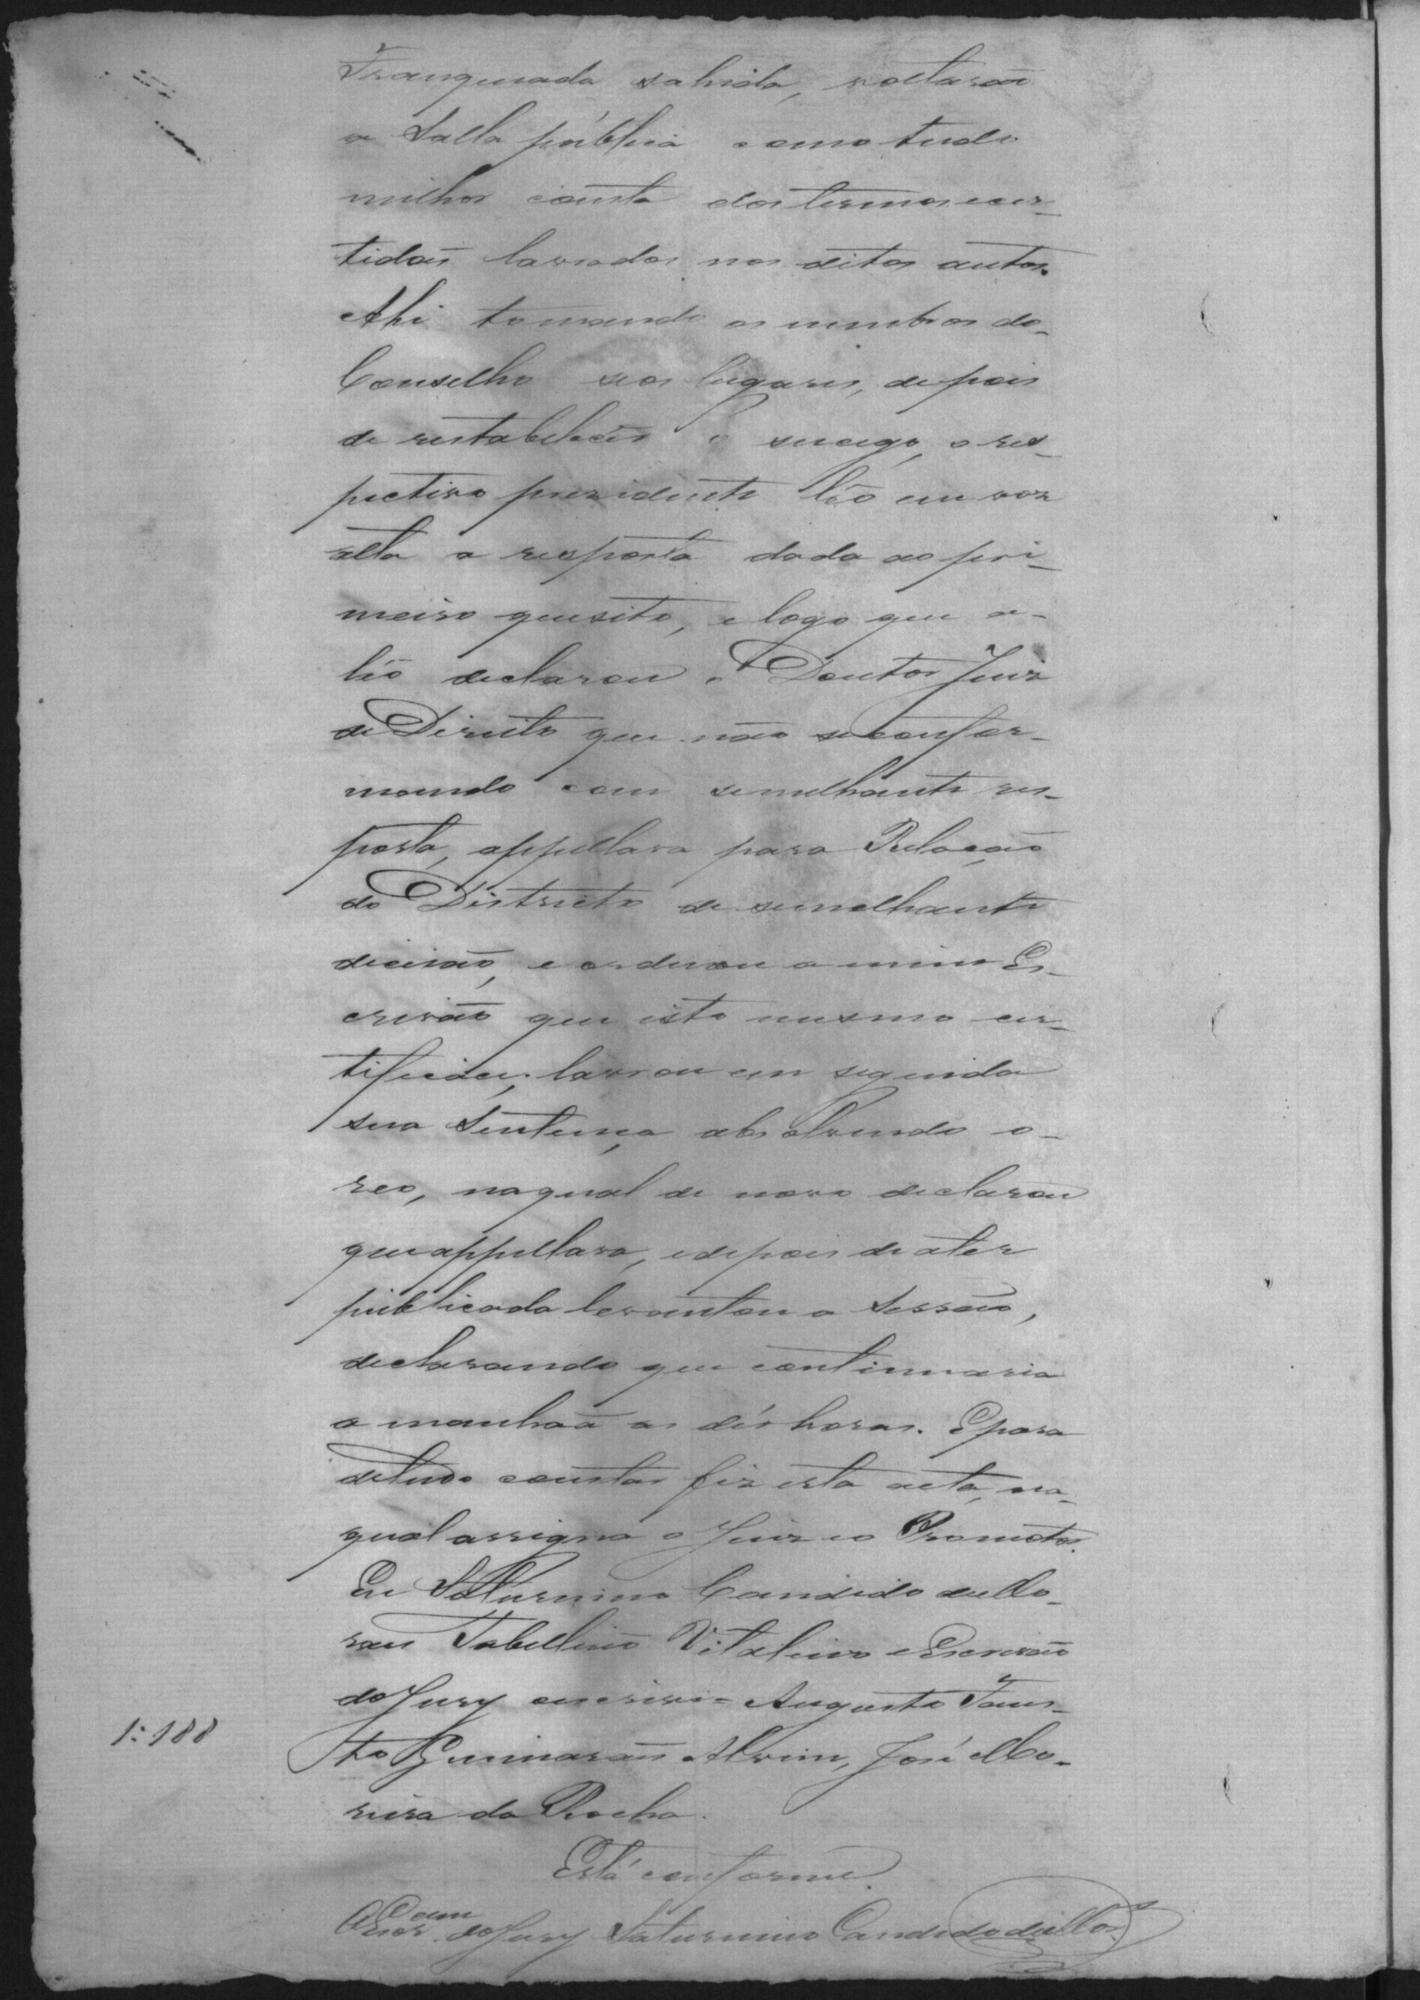 Franqueada sahida, voltarão
a Salla pública como tudo
milhor consta dos termos e cer-
tidões lavrados nos ditos autos.
Ahi tomando os membros do
Conselho seos lugares, depois
de restabelecer o sucego, o res-
pectivo prezidente léo em voz
alta a resposta dada ao pri-
meiro quesito, e logo que a
léo declarou o Doutor Juiz
de Direito que não se confor-
mando com semelhante res-
posta, appellava para Relação
do Districto de semelhante
decisão, e ordenou a mim Es-
crivão que isto mesmo cer-
tificace; lavrou em seguida
sua Sentença absolvendo o
reo, na qual de novo declarou
que appellava, e depois de a ter
publicada levantou a Sessão,
declarando que continuaria
a manhaã as dés horas. E para
de tudo constar fiz esta acta, na
qual assigna o Juiz e o Promotor.
Eu Saturnino Candido de Mo-
raes Tabellião Vitalicio e Escrivão
do Jury escrivi= Augusto Faus-
to Guimarães Alvim, José Mo-
reira da Rocha.
1:188
Está conforme.
O Escr.am do Jury Saturnino Candido de Mor.